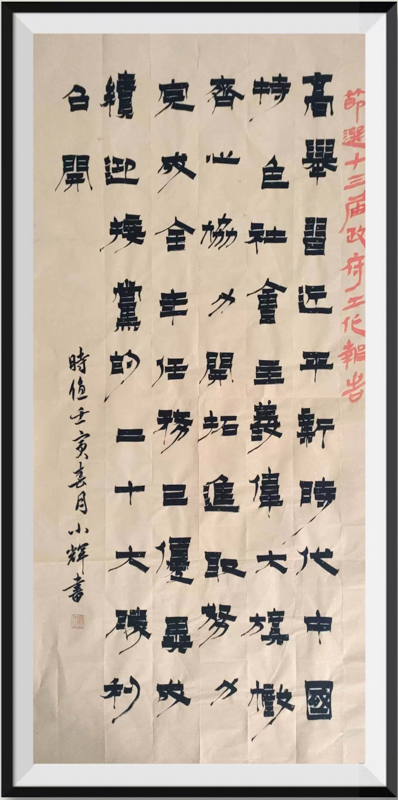 節選十三届政府工作報告
高舉習近平新時代中國
特色社會主義偉大旗幟
齊心協力開拓進取努力
完成全年任務已優異成
續迎接黨的二十大勝利
召開
時值壬寅春月小輝書